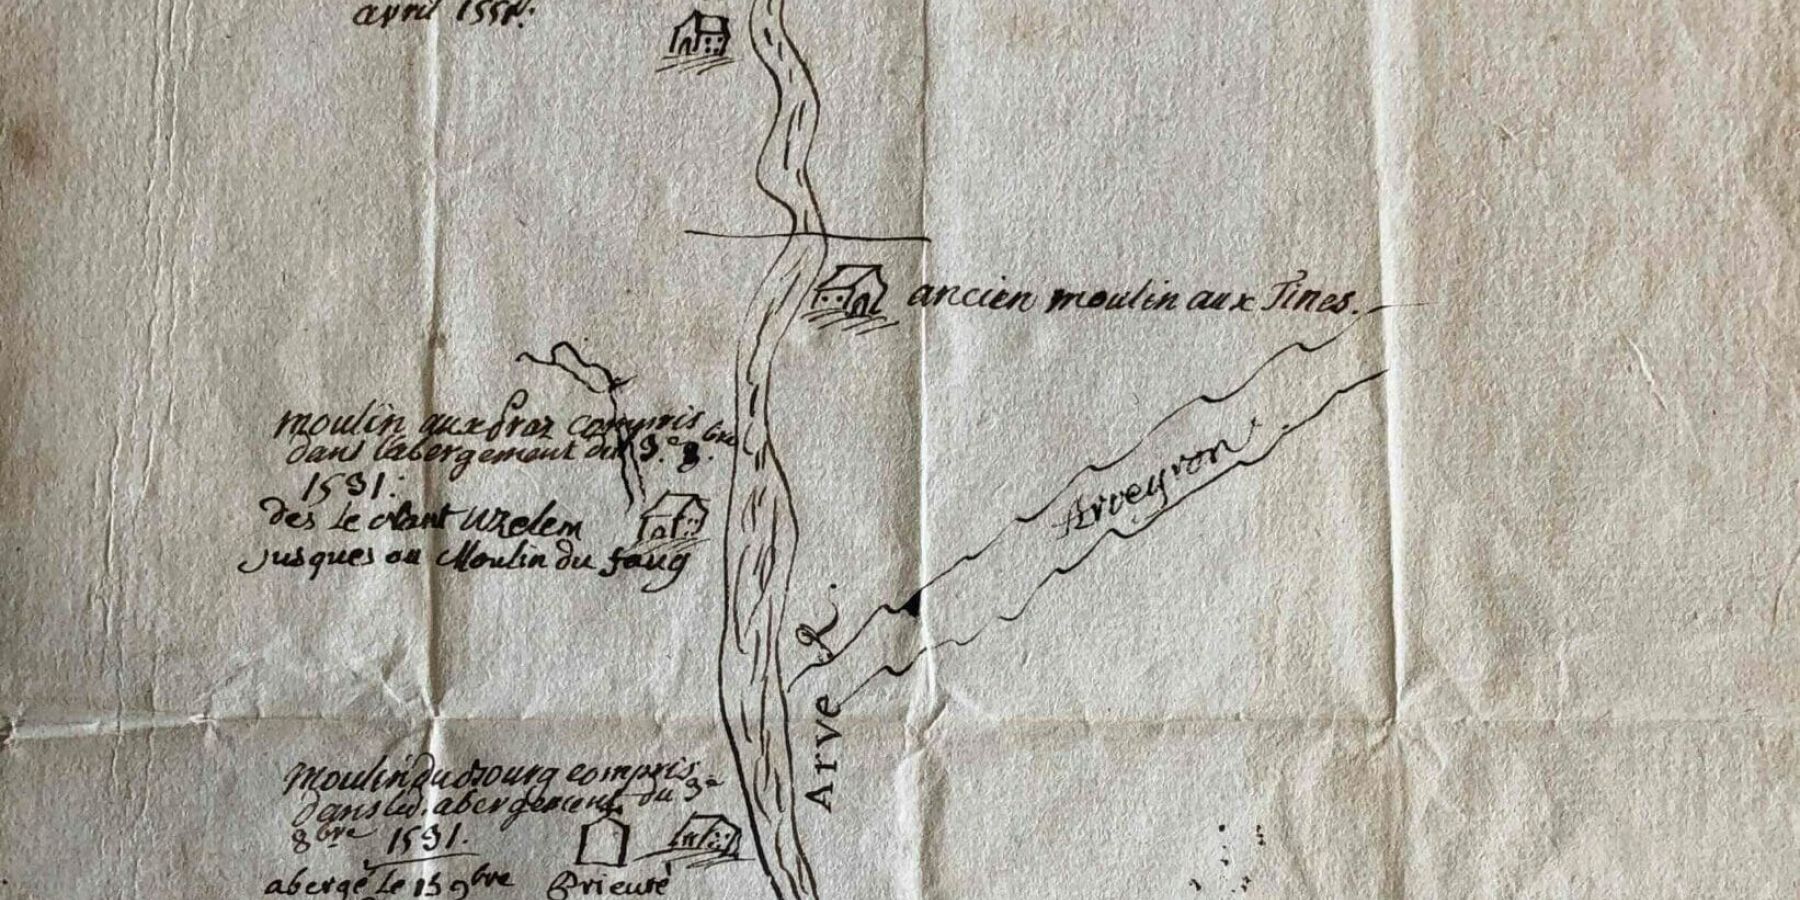 avril 1551.
ancien moulin aux Tines.
moulin aux praz compris
dans l'abergement du 3.e 8.bre
1531.
des le Nant Uzelem
jusques au Moulin du foug
Arveyron
Arve R.
Moulin du Bourg compris
dans led. abergement du 3e
8bre 1531.
abergé le 15 9bre
Prieuré